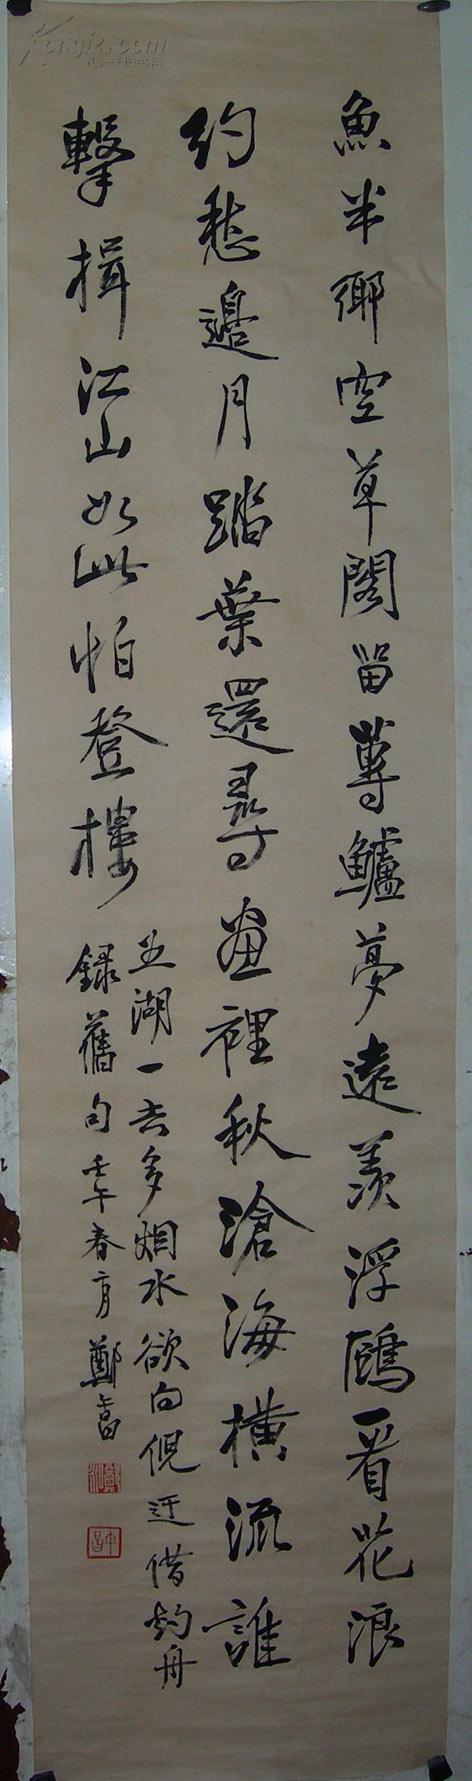 魚半鄉空草閣留蓴鱸夢遠羨浮鷗看花浪
約愁邊月踏葉還尋畫裡秋滄海橫流誰
擊楫江山如此怕登樓
五湖一去多烟水欲向倪迂借釣舟
錄舊句壬午春月鄭午昌
午昌
Kongfz.com
孔夫子旧书网